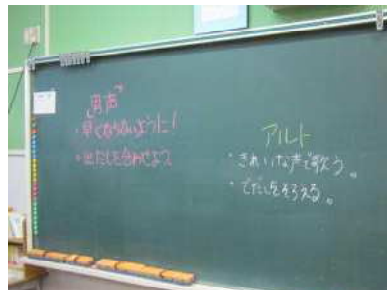 男声
・早くならないように!
・出だしを合わせよう
アルト
・きれいな声で歌う。
・でだしをそろえる。